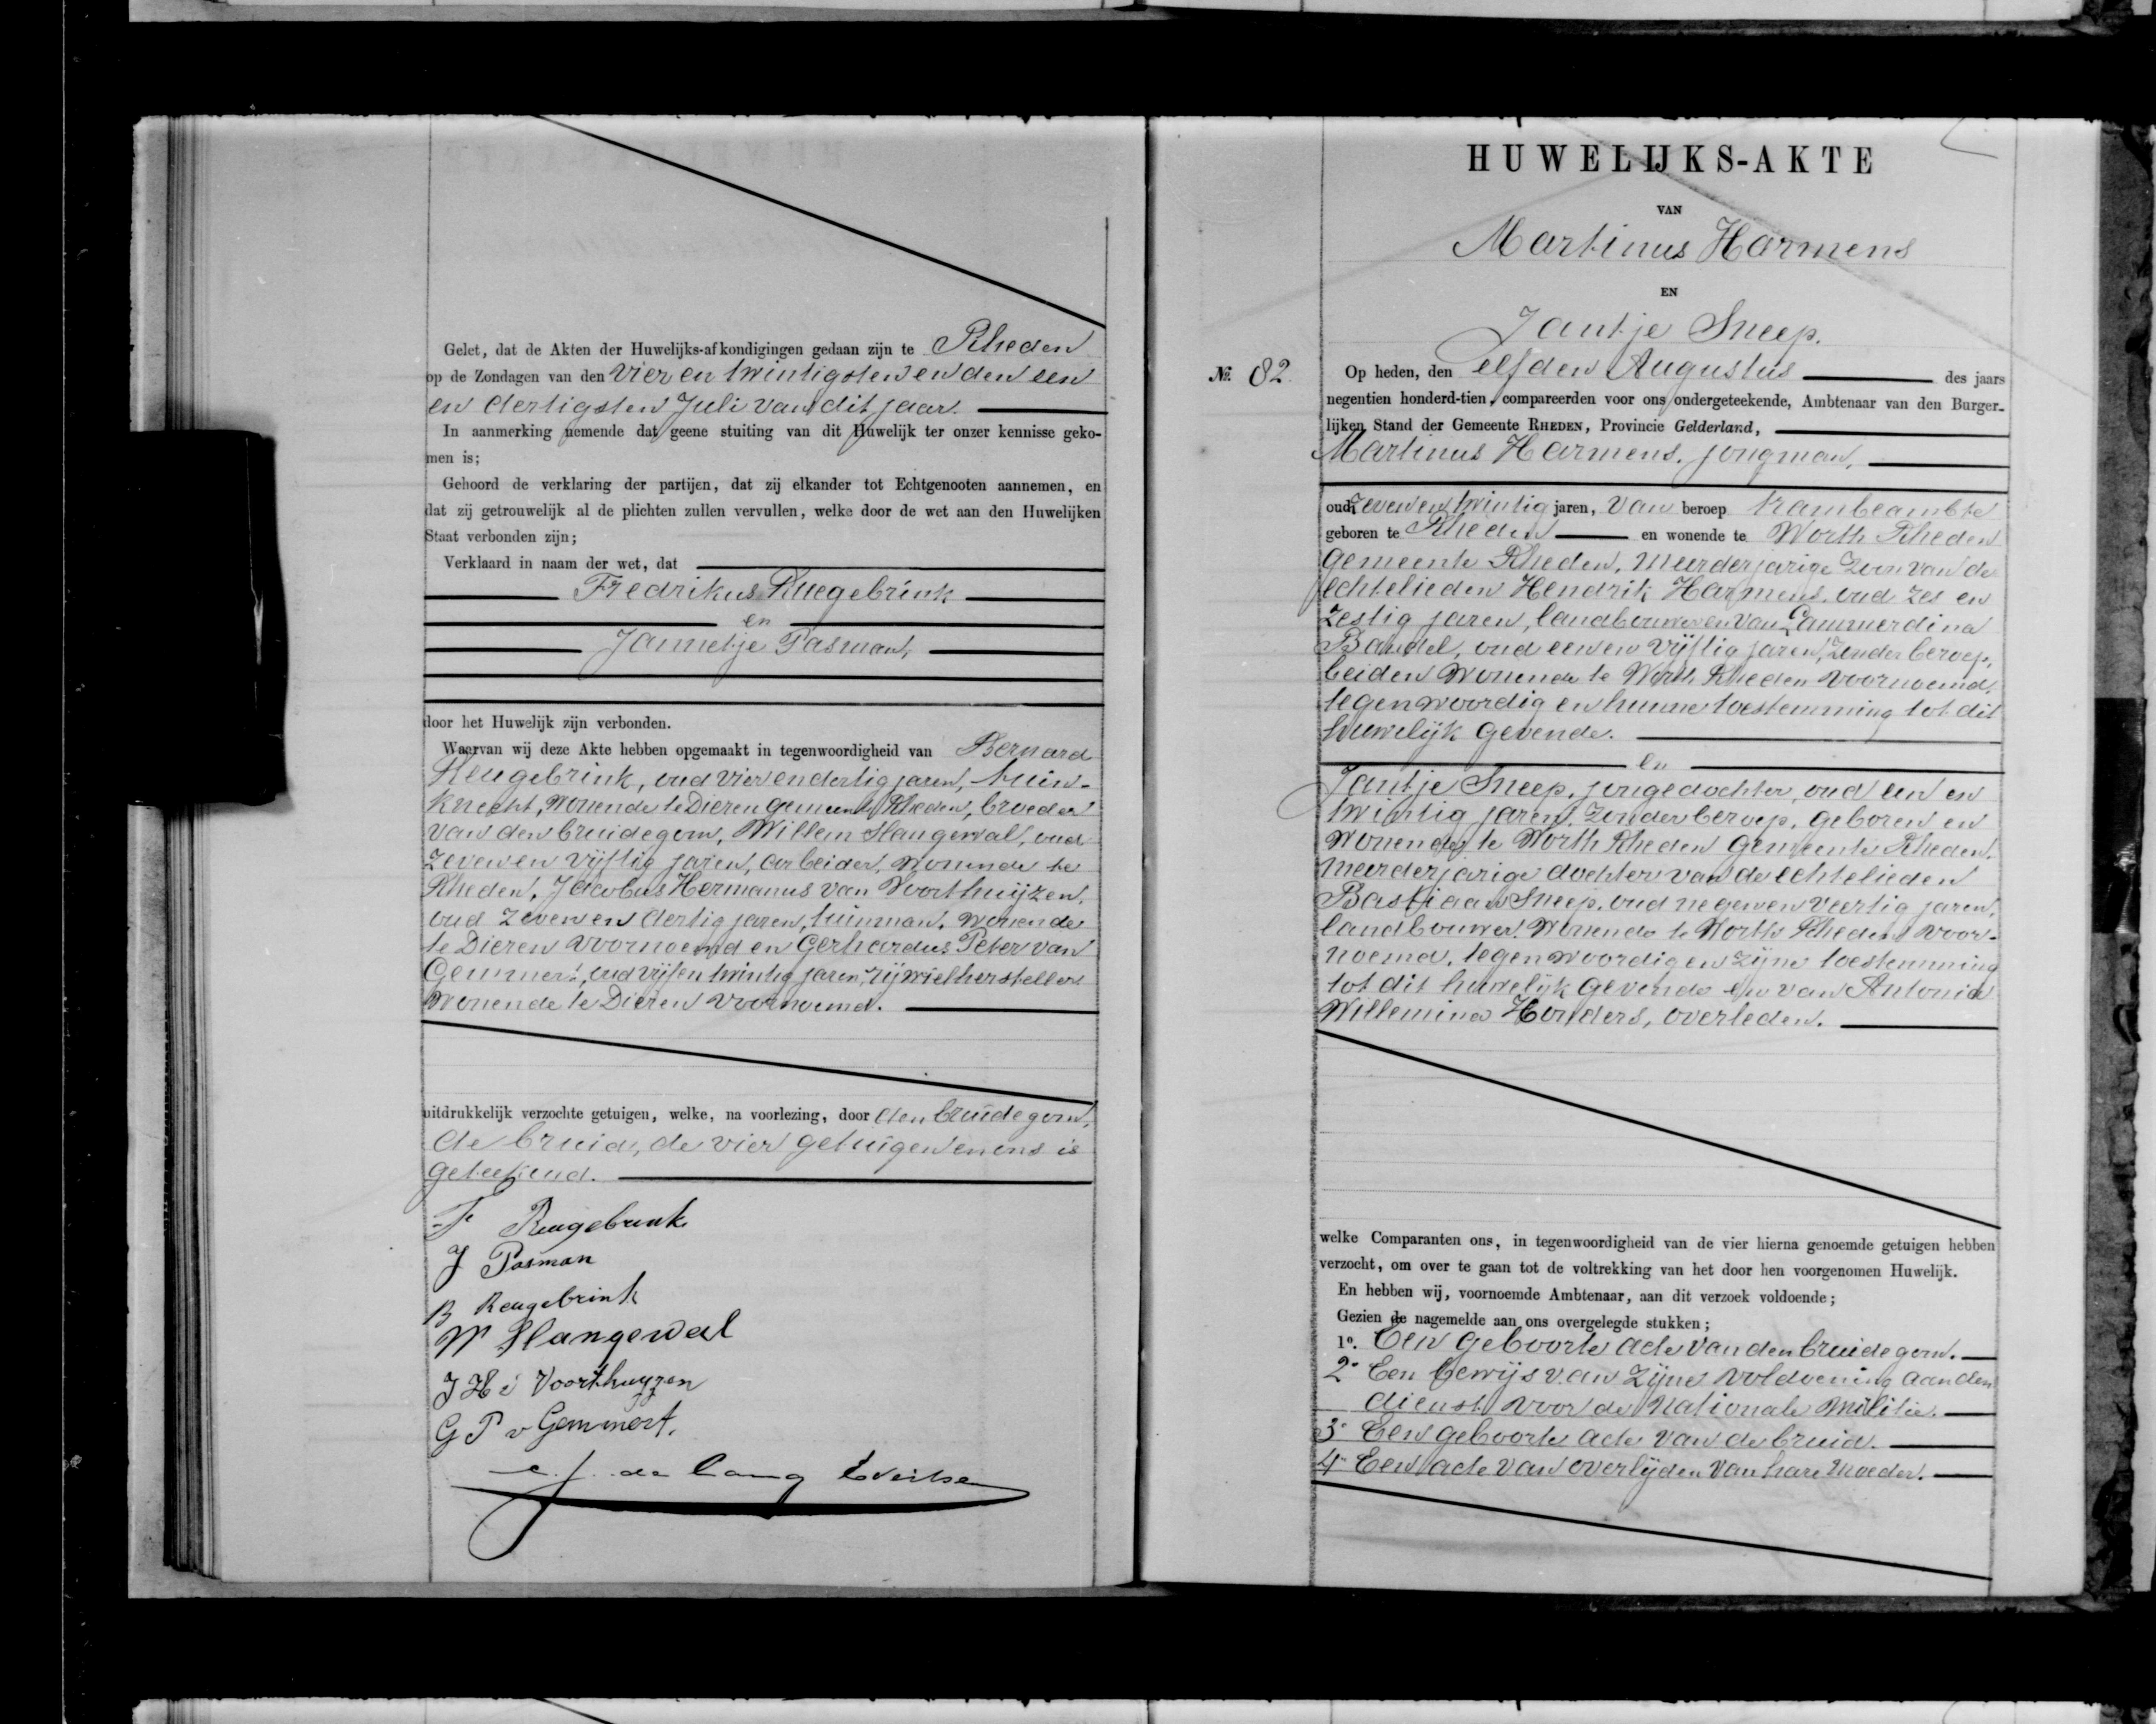 Gelet, dat de Akten der Huwelijks-afkondigingen gedaan zijn te Rheden
op de Zondagen van den vier en twintigsten en den een
en dertigsten Juli van dit jaar.
In aanmerking nemende dat geene stuiting van dit Huwelijk ter onzer kennisse geko-
men is;
Gehoord de verklaring der partijen, dat zij elkander tot Echtgenooten aannemen, en
dat zij getrouwelijk al de plichten zullen vervullen, welke door de wet aan den Huwelijken
Staat verbonden zijn;
Verklaard in naam der wet, dat
Fredrikus Reugebrink
en
Jannetje Pasman,
door het Huwelijk zijn verbonden.
Waarvan wij deze Akte hebben opgemaakt in tegenwoordigheid van Bernard
Reugebrink, oud vier en dertig jaren, tuin-
knecht, wonende te Dieren gemeente Rheden, broeder
van den bruidegom, Willem Slangewal, oud
zeven en vijftig jaren, arbeider, wonende te
Rheden, Jacobus Hermanus van Voorthuijzen,
oud zeven en dertig jaren, tuinman, wonende
te Dieren voornoemd en Gerhardus Peter van
Gemmert, oud vijf en twintig jaren, rijwielhersteller
wonende te Dieren voornoemd.
uitdrukkelijk verzochte getuigen, welke, na voorlezing, door den bruidegom,
de bruid, de vier getuigen en ons is
geteekend.
F Reugebrink
J Pasman
B Reugebrink
W Slangewal
J H v Voorthuyzen
G P v Gemmert.
de Lang Evertsen
HUWELIJKS-AKTE
VAN
Martinus Harmens
EN
Jantje Sneep.
No. 82.
Op heden, den elfden Augustus des jaars
negentien honderd-tien, compareerden voor ons ondergeteekende, Ambtenaar van den Burger-
lijken Stand der Gemeente RHEDEN, Provincie Gelderland,
Martinus Harmens, jongman,
oud zeven en twintig jaren, van beroep trambeambte
geboren te Rheden en wonende te Worth Rheden
gemeente Rheden, meerderjarige zoon van de
echtelieden Hendrik Harmens, oud zes en
zestig jaren, landbouwer en van Cammerdina
Bandel, oud een en vijftig jaren, zonder beroep,
beiden wonende te Worth Rheden voornoemd,
tegenwoordig en hunne toestemming tot dit
huwelijk gevende.
en
Jantje Sneep, jongedochter, oud een en
twintig jaren, zonder beroep, geboren en
wonende te Worth Rheden gemeente Rheden,
meerderjarige dochter van de echtelieden
Bastiaan Sneep, oud negen en veertig jaren,
landbouwer, wonende te Worth Rheden voor-
noemd, tegenwoordig en zijne toestemming
tot dit huwelijk gevende en van Antonia
Willemina Honders, overleden.
welke Comparanten ons, in tegenwoordigheid van de vier hierna genoemde getuigen hebben
verzocht, om over te gaan tot de voltrekking van het door hen voorgenomen Huwelijk.
En hebben wij, voornoemde Ambtenaar, aan dit verzoek voldoende;
Gezien de nagemelde aan ons overgelegde stukken;
1o. Een geboorte acte van den bruidegom.
2o Een bewijs van zijne voldoening aan den
dienst voor de Nationale Militie.
3o Een geboorte acte van de bruid.
4o Een acte van overlijden van hare moeder.